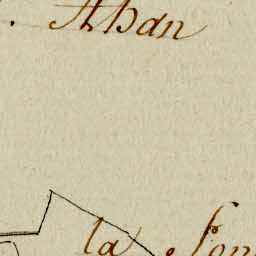 . Ahan
la fon